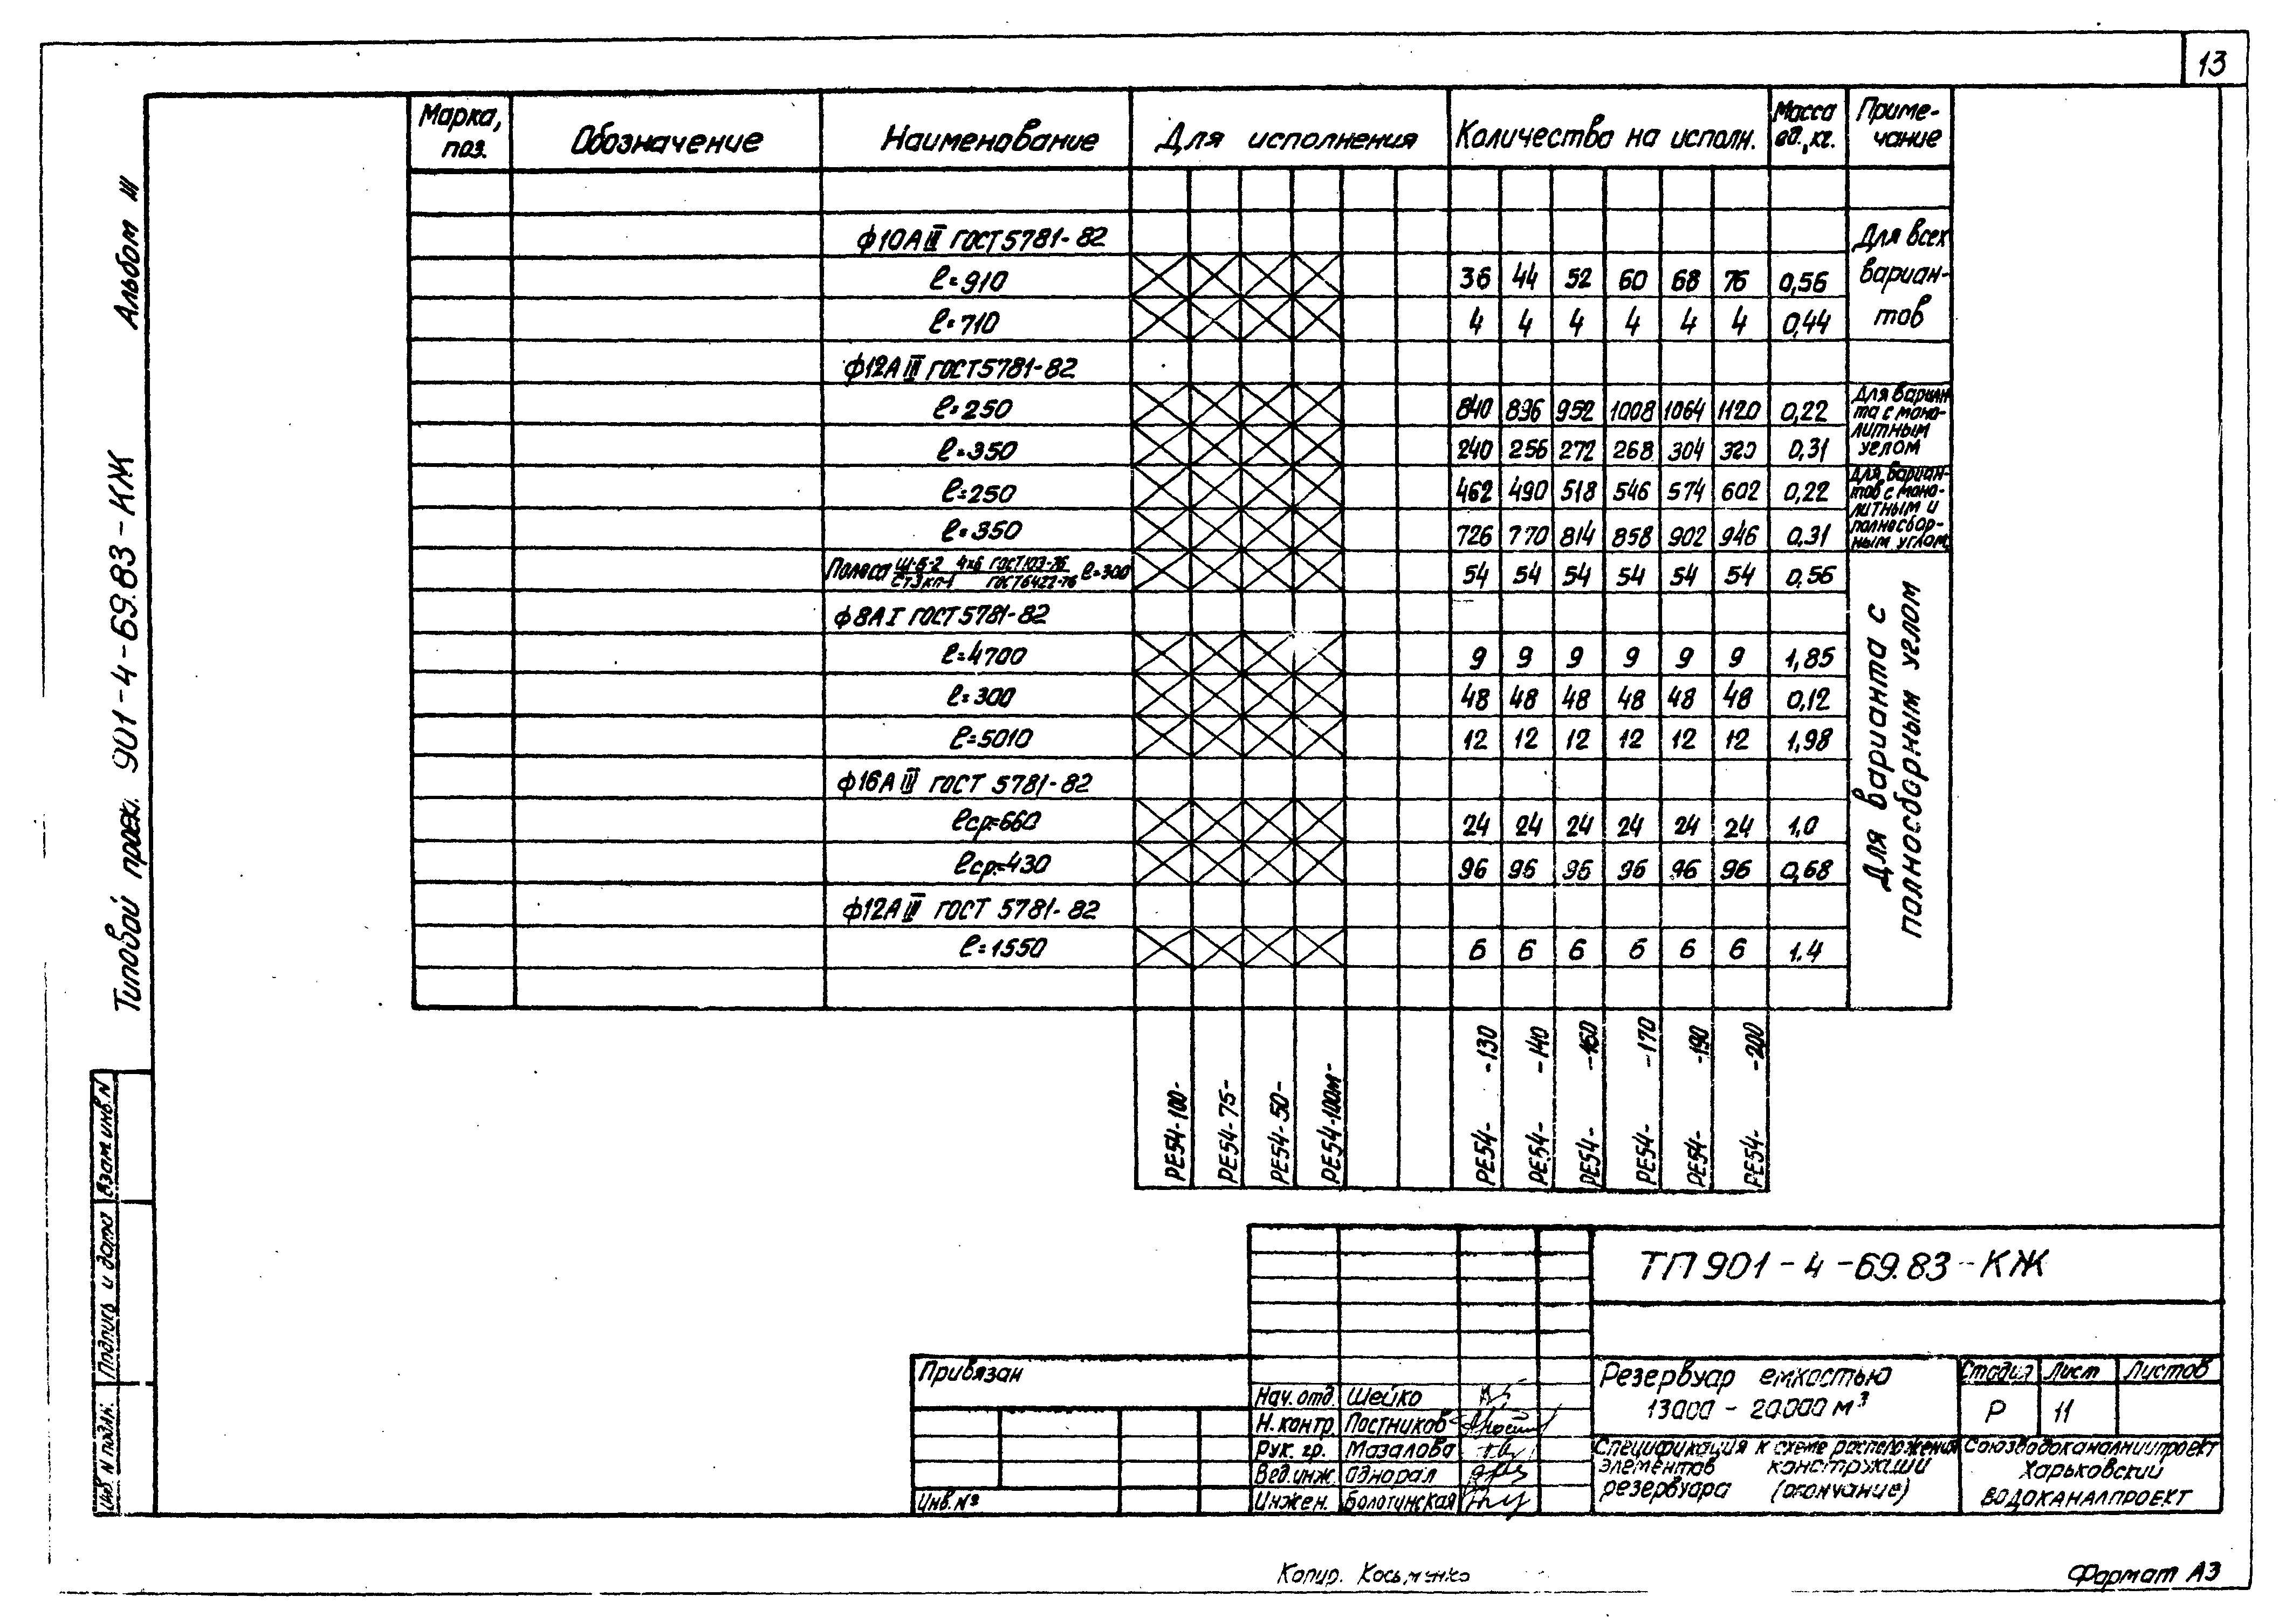 13
Альбом III
Типовой проек. 901-4-69.83-КЖ
Марка, поз.
Обозначение
Наименование
Для исполнения
Количество на исполн.
Масса ед., кг.
Приме-
чание
ф10АIII ГОСТ5781-82
Для всех
вариан-
тов
ℓ=910 36 44 52 60 68 76 0,56
ℓ=710 4 4 4 4 4 4 0,44
ф12АIII ГОСТ5781-82
ℓ=250 840 896 952 1008 1064 1120 0,22
ℓ=350 240 256 272 268 304 320 0,31
Для вариан
та с моно-
литным
углом
ℓ=250 462 490 518 546 574 602 0,22
ℓ=350 726 770 814 858 902 946 0,31
Для вариан-
тов с моно-
литным и
полносбор-
ным углом
Полоса Ш-Б-2 4х6 ГОСТ103-76 / Ст3кп-1 ГОСТ6422-76 ℓ=300 54 54 54 54 54 54 0,56
ф8АI ГОСТ5781-82
ℓ=4700 9 9 9 9 9 9 1,85
ℓ=300 48 48 48 48 48 48 0,12
ℓ=5010 12 12 12 12 12 12 1,98
ф16АIII ГОСТ 5781-82
ℓср=660 24 24 24 24 24 24 1,0
ℓср=430 96 96 96 96 96 96 0,68
ф12АIII ГОСТ 5781-82
ℓ=1550 6 6 6 6 6 6 1.4
Для варианта с
полносборным углом
РЕ54-100-
РЕ54-75-
РЕ54-50-
РЕ54-100м-
РЕ54- -130
РЕ54- -140
РЕ54- -160
РЕ54- -170
РЕ54- -190
РЕ54- -200
Взам.инв.N
Подпись и дата
Инв N подл.
ТП901-4-69.83-КЖ
Привязан
Инв.№
Нач.отд. Шейко
Н.контр. Постников
Рук. гр. Мазалова
Вед.инж. Однорал
Инжен. Болотинская
Резервуар емкостью
13000 - 20000 м³
Стадия Лист Листов
Р 11
Спецификация к схеме расположения
элементов конструкции
резервуара (окончание)
Союзводоканалниипроект
Харьковский
ВОДОКАНАЛПРОЕКТ
Копир. Косьменко
Формат А3